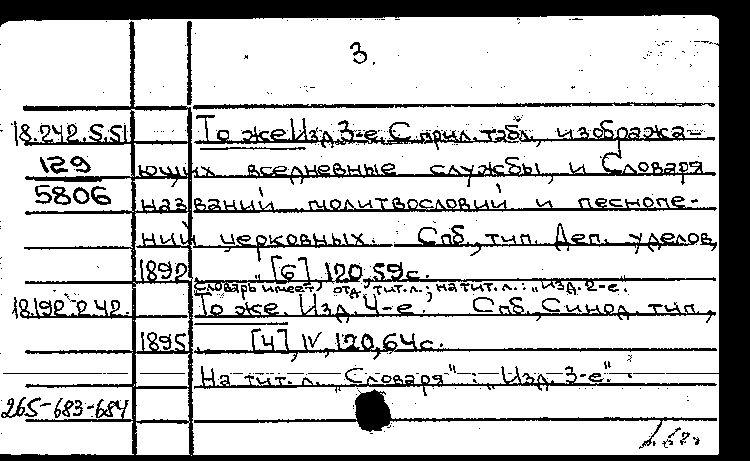 3.
18.242.5.51 То же Изд. 3-е. С прил. табл., изобража-
129 ющих вседневные службы, и Словаря
5806 названий молитвословий и песнопе-
ний церковных. Спб., тип. Деп. уделов,
1892. [6], 120, 59с.
Словарь имеет отд. тит. л.; на тит. л.: "Изд. 2-е".
18.192.2.42. То же. Изд. 4-е. Спб., Синод. тип.,
1895. [4], IV, 120, 64с.
На тит. л. "Словаря": "Изд. 3-е".
265-683-684